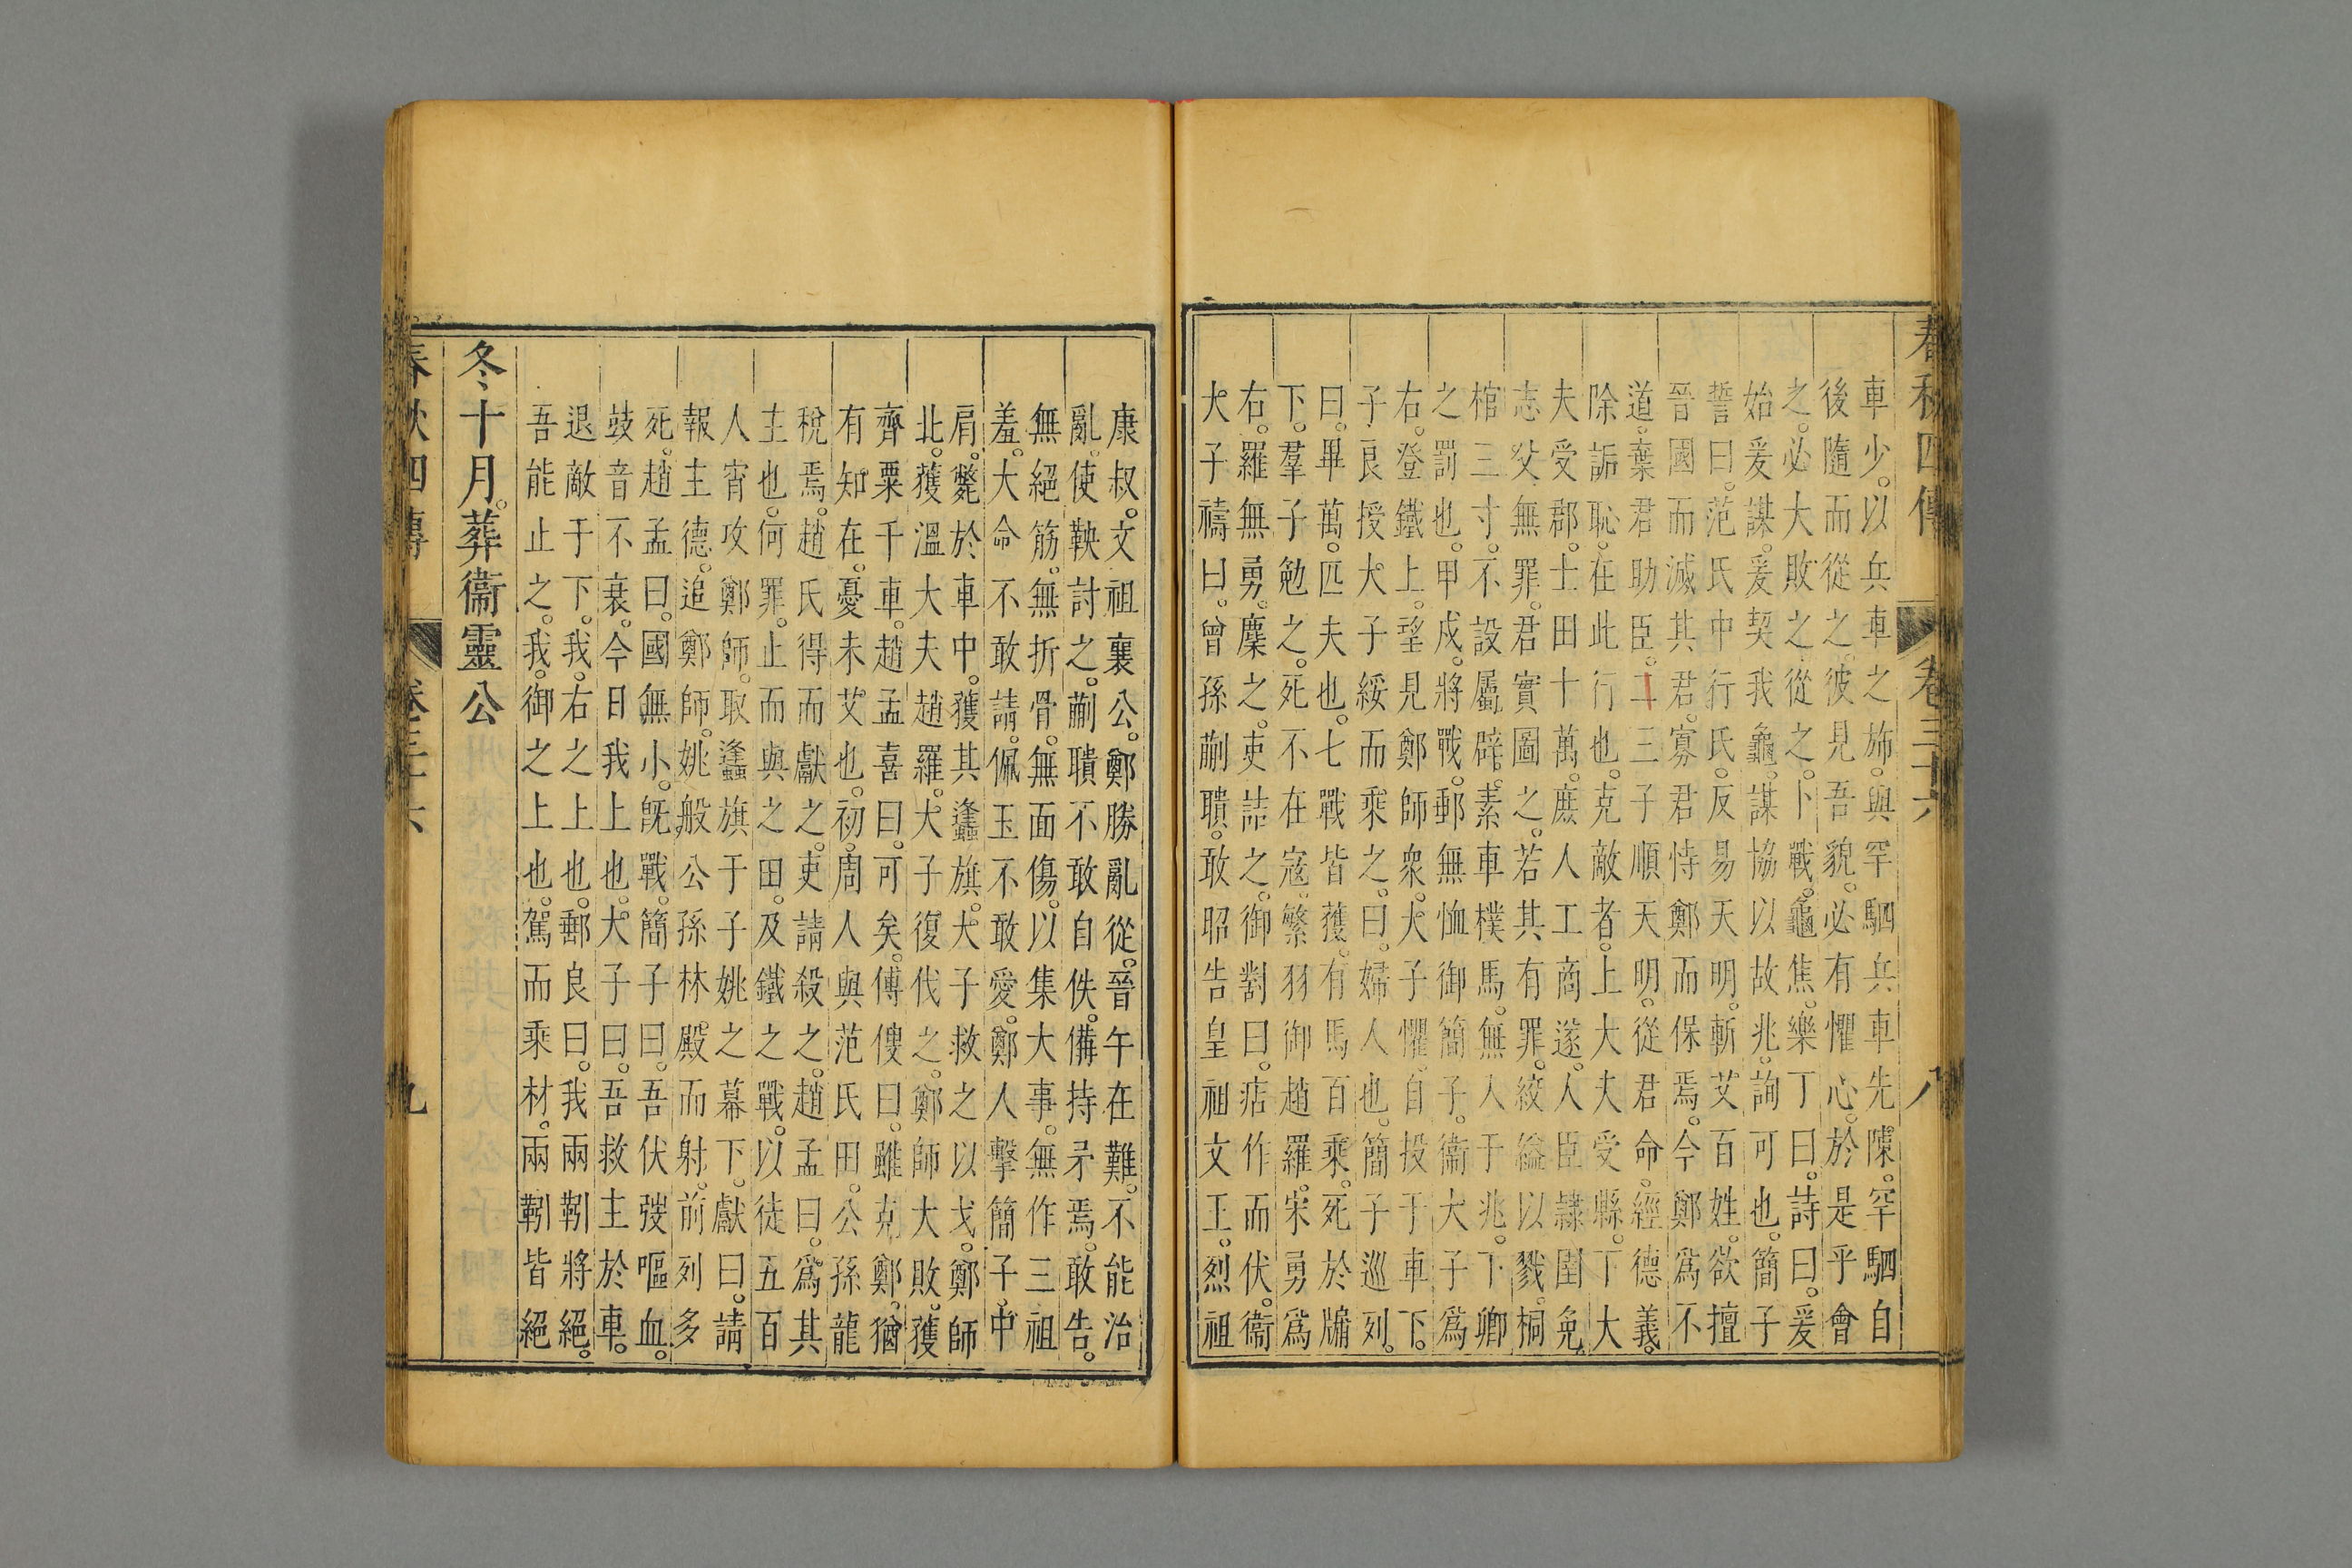 春秋四傳 卷三十六 八
車少。以兵車之斾。與罕駟兵車先陳。罕駟自
後隨而從之。彼見吾貌。必有懼心。於是乎會
之。必大敗之。從之。卜戰。龜焦。樂丁曰。詩曰。爰
始爰謀。爰契我龜。謀協以故兆。詢可也。簡子
誓曰。范氏中行氏。反易天明。斬艾百姓。欲擅
晉國而滅其君。寡君恃鄭而保焉。今鄭爲不
道。棄君助臣。二三子順天明。從君命。經德義。
除詬恥。在此行也。克敵者。上大夫受縣。下大
夫受郡。士田十萬。庶人工商遂。人臣隷圉免
志父無罪。君實圖之。若其有罪。絞縊以戮。桐
棺三寸。不設屬辟。素車樸馬。無入于兆。下卿
之罰也。甲戍。將戰。郵無恤御簡子。衞大子爲
右。登鐵上。望見鄭師衆。大子懼。自投于車下。
子良授大子綏而乘之。曰。婦人也。簡子巡列。
曰。畢萬。匹夫也。七戰皆獲。有馬百乘。死於牖
下。羣子勉之。死不在寇。繁羽御趙羅。宋勇爲
右。羅無勇。麇之。吏詰之。御對曰。痁作而伏。衞
大子禱曰。曾孫蒯聵。敢昭告皇祖文王。烈祖
康叔。文祖襄公。鄭勝亂從。晉午在難。不能治
亂。使鞅討之。蒯聵不敢自佚。備持矛焉。敢告。
無絕筋。無折骨。無面傷。以集大事。無作三祖
羞。大命不敢請。佩玉不敢愛。鄭人擊簡子。中
肩。斃於車中。獲其蠭旗。大子救之以戈。鄭師
北。獲溫大夫趙羅。大子復伐之。鄭師大敗。獲
齊粟千車。趙孟喜曰。可矣。傅傁曰。雖克鄭。猶
有知在。憂未艾也。初。周人與范氏田。公孫龍
稅焉。趙氏得而獻之。吏請殺之。趙孟曰。爲其
主也。何罪。止而與之田。及鐵之戰。以徒五百
人宵攻鄭師。取蠭旗于子姚之幕下。獻曰。請
報主德。追鄭師。姚般公孫林殿而射。前列多
死。趙孟曰。國無小。旣戰。簡子曰。吾伏弢嘔血。
鼓音不衰。今日我上也。大子曰。吾救主於車。
退敵于下。我。右之上也。郵良曰。我兩靷將絕。
吾能止之。我。御之上也。駕而乘材。兩靷皆絕
冬十月。葬衞靈公
春秋四傳 卷三十六 九